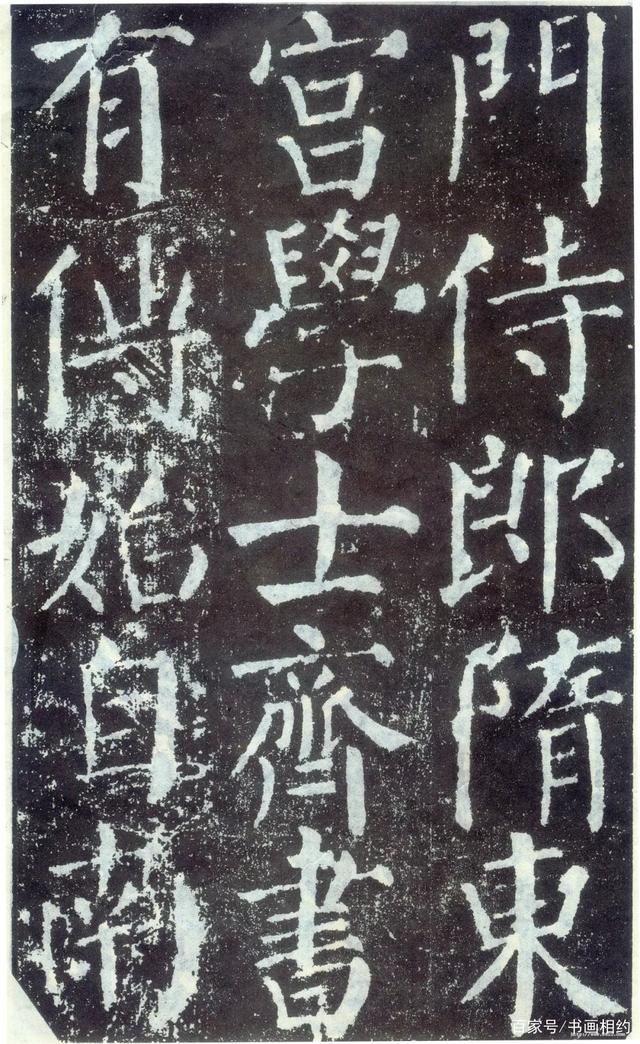 門侍郎隋東
宮學士齊書
有傳始自南
百家号/书画相约